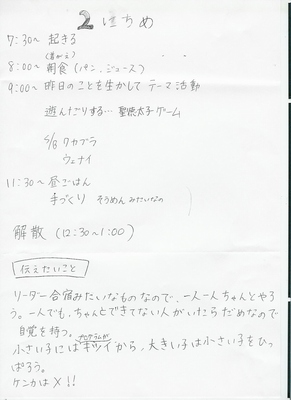 2にちめ
7:30～ 起きる
(着がえ)
8:00～ 朝食 (パン、ジュース)
9:00～ 昨日のことを生かして テーマ活動
遊んだりする… 聖徳太子ゲーム
ワカプラ
ウェナイ
11:30～ 昼ごはん
手づくり そうめんみたいなの
解散 (12:30～1:00)
伝えたいこと
リーダー合宿みたいなものなので、一人一人ちゃんとやろ
う。一人でも、ちゃんとできてない人がいたらだめなので
自覚を持つ。
小さい子にはキツイから、大きい子は小さい子をひっ
ぱろう。
ケンカは×!!